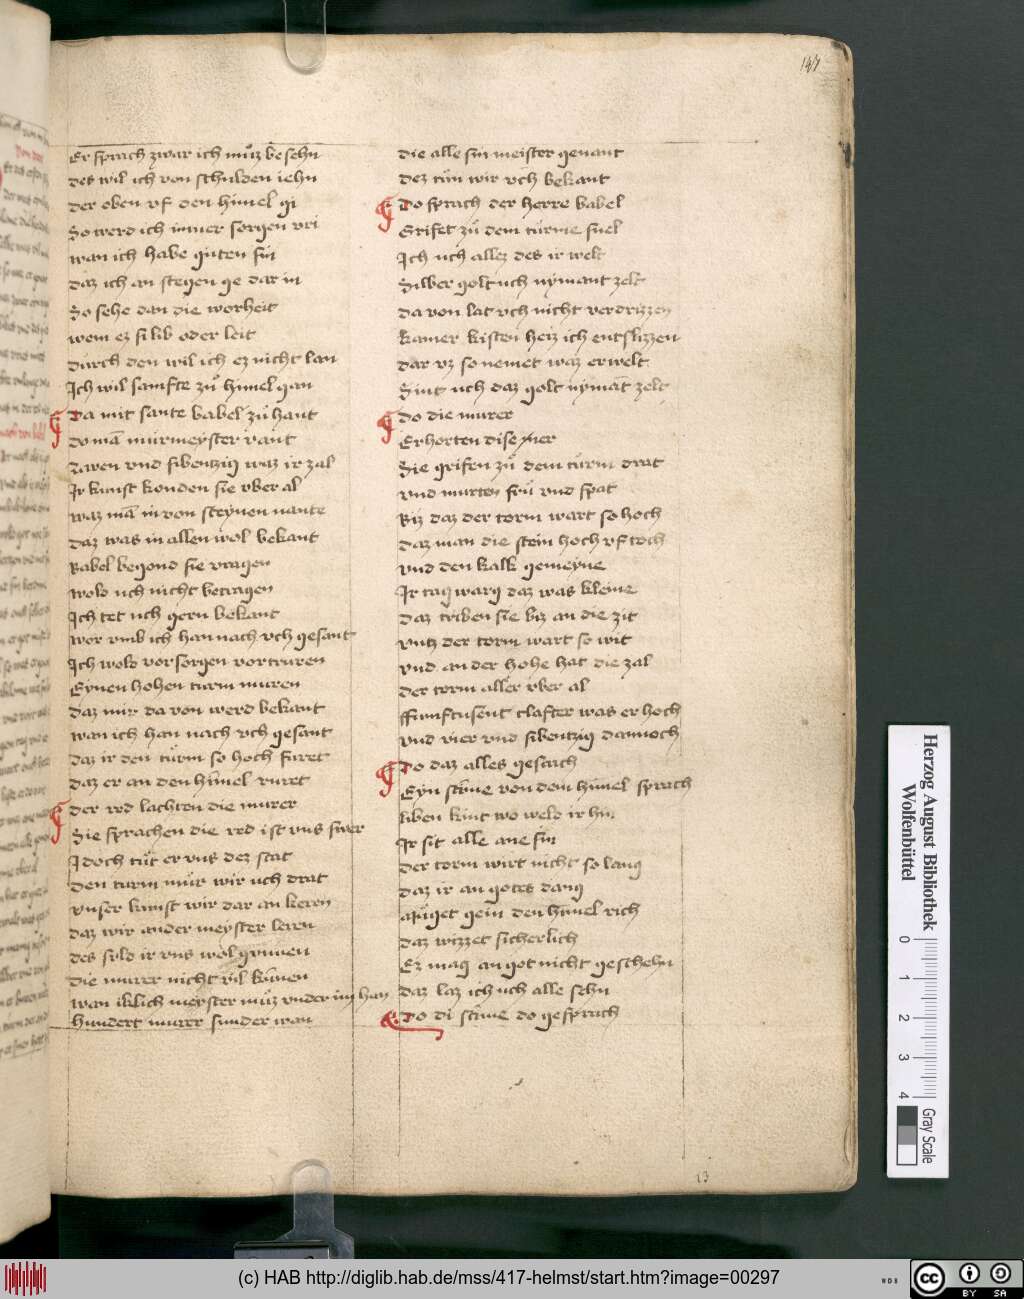 147
Er sprach zwar ich můz besehn
des wil ich von schulden iehn
der oben vf den himel gi
So werd ich imner sorgen vri
wan ich habe guten sin
daz ich an stegen ge dar in
So sehe dan die worheit
wem ez si lib oder leit
durch den wil ich ez nicht lan
Ich wil samfte zů himel gan
Da mit sante babel zů hant
do mā murmeyster vant
zwen vnd sibentzig waz ir zal
Ir kunst konden sie vber al
waz mā in von steynen nante
daz was in allen wol bekant
Babel begond sie vragen
wold uch nicht betragen
Ich tet uch gern bekant
wor vmb ich han nach vch gesant
Ich wold vor sorgen vor truren
Eynen hohen turm muren
daz mir da von werd bekant
wan ich han nach vch gesant
daz ir den tůrm so hoch furet
daz er an den himel ruret
der red lachten die murer
Sie sprachen die red ist vns swer
Idoch tůt er vns dez stat
den turm můr wir uch drat
vnser kunst wir dar an kern
daz wir ander meyster lern
des sold ir vns wol gunnen
die murer nicht vil kūnen
wan iklich meyster můz vnder im han
hundert murer sunder wan
die alle sin meister genant
dez tůn wir vch bekant
Do sprach der herre babel
Grifet zů dem turme snel
Ich uch allez des ir welt
Silber golt uch nymant zelt
da von lat vch nicht verdrizzen
kamer kisten heiz ich entslizzen
dar vz so nemet waz er welt
Sint uch daz golt nymāt zelt
do die murer
Erhorten dise mer
Sie grifen zů dem turm drat
vnd murten frů vnd spat
Biz daz der torm wart so hoch
daz man die stein hoch vf zoch
vnd den kalk gemeyne
Ir tag warg daz was kleine
daz triben sie biz an die zit
vntz der torm wart so wit
vnd an der hohe hat die zal
der torm aller vber al
ffunftusent clafter was er hoch
vnd vier vnd sibentzig dannoch
Do daz alles geschach
Eyn stīme von dem himel sprach
liben kint wo weld ir hin
Ir sit alle ane sin
der torm wirt nicht so lang
daz ir an gotes dang
muget gein den himel rich
daz wizzet sicherlich
Ez mag an got nicht geschehn
daz laz ich uch alle sehn
Do di stīme do gesprach
13
Herzog August Bibliothek
Wolfenbüttel
0 1 2 3 4
Gray Scale
(c) HAB http://diglib.hab.de/mss/417-helmst/start.htm?image=00297
WDB
cc BY SA